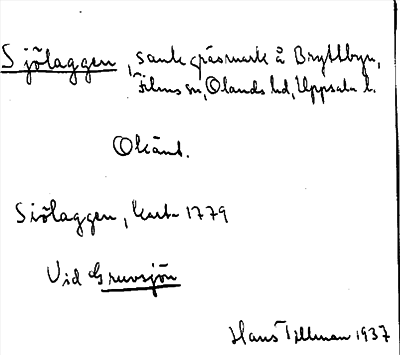 Sjölaggen, sank gräsmark å Bryttbyn,
Films sn, Olands hd, Uppsala l.
Okänt.
Siölaggen, karta 1779
Vid Gruvsjön
Hans Tillman 1937